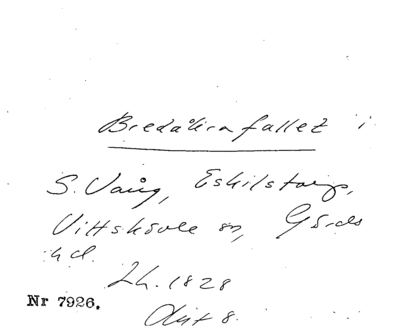 Bredåkrafallet i
S. Vång, Eskilstorp,
Vittskövle sn, Gärds
hd.
Lh. 1828
Nr 7926.
Akt 8.